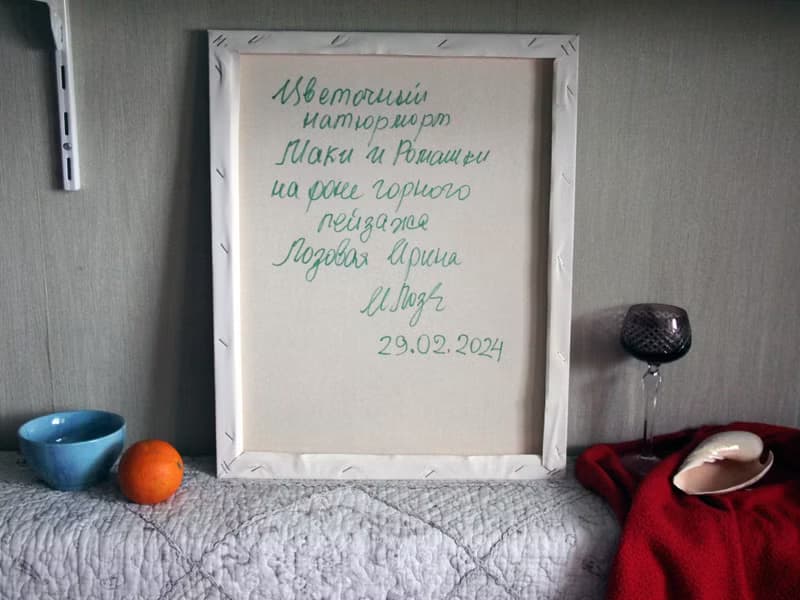 Цветочный
натюрморт
Маки и Ромашки
на фоне горного
пейзажа
Лозовая Ирина
ИЛозв
29.02.2024